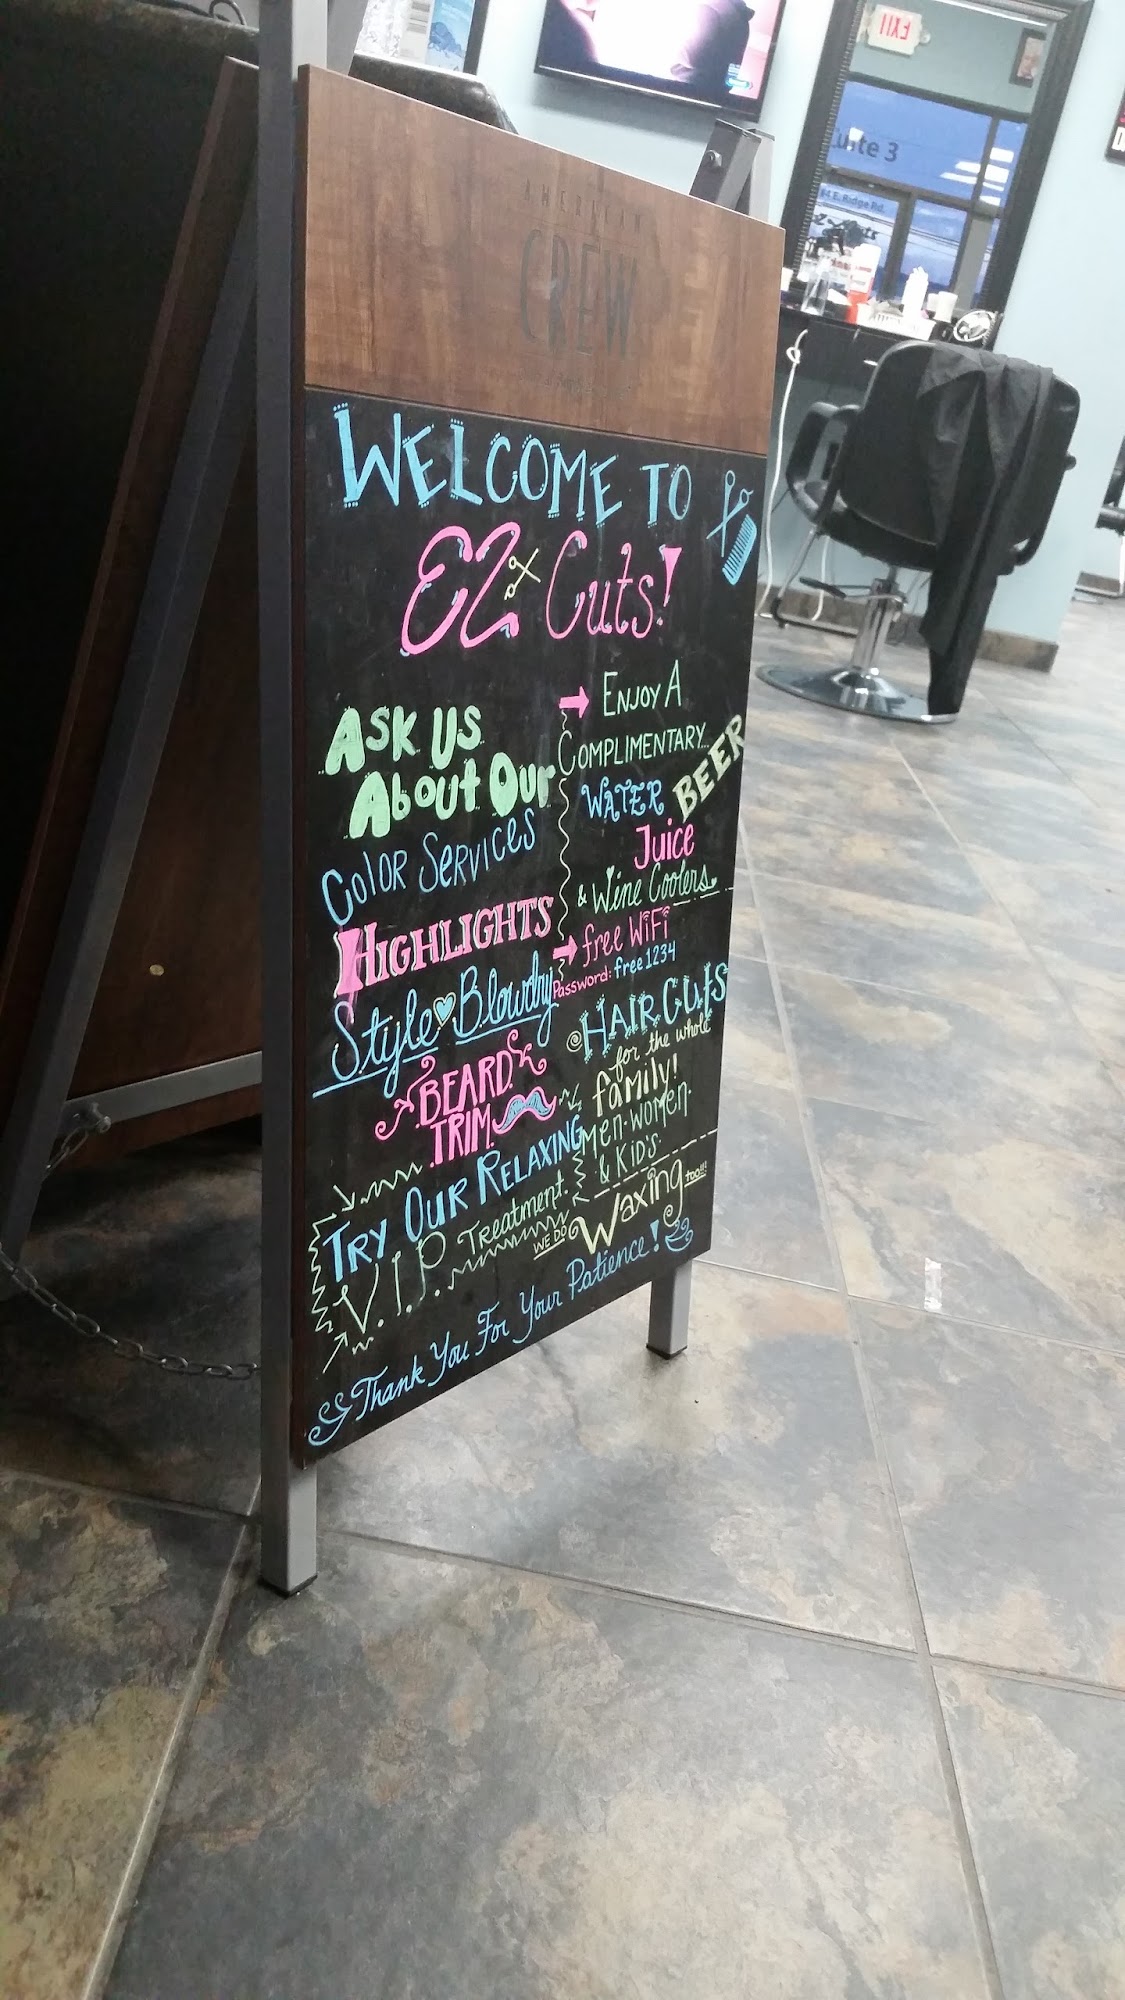 AMERICAN
CREW
WELCOME TO
EZ Cuts!
ASK US
ABOUT OUR
COLOR SERVICES
HIGHLIGHTS
Style Blowdry
BEARD
TRIM
TRY OUR RELAXING
V.I.P. TREATMENT.
ENJOY A
COMPLIMENTARY...
WATER BEER
JUICE
& Wine Coolers
free WiFi
Password: free1234
HAIRCUTS
for the whole
family!
MEN·WOMEN·
& KID'S·
WE DO Waxing too!!!
Thank You For Your Patience!
EXIT
Suite 3
E. Ridge Rd.